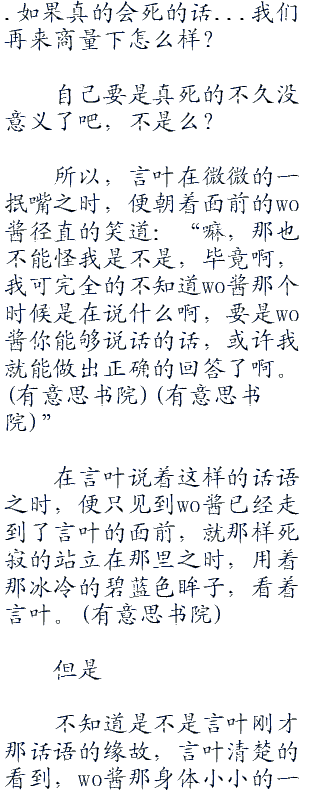 .如果真的会死的话...我们
再来商量下怎么样?
自己要是真死的不久没
意义了吧，不是么?
所以，言叶在微微的一
抿嘴之时，便朝着面前的wo
酱径直的笑道：“嘛，那也
不能怪我是不是，毕竟啊，
我可完全的不知道wo酱那个
时候是在说什么啊，要是wo
酱你能够说话的话，或许我
就能做出正确的回答了啊。
(有意思书院)(有意思书
院)”
在言叶说着这样的话语
之时，便只见到wo酱已经走
到了言叶的面前，就那样死
寂的站立在那里之时，用着
那冰冷的碧蓝色眸子，看着
言叶。(有意思书院)
但是
不知道是不是言叶刚才
那话语的缘故，言叶清楚的
看到，wo酱那身体小小的一